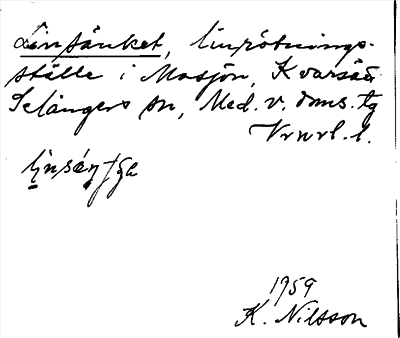 Linsänket, linrötnings-
ställe i Masjön, Kvarsätt
Selångers sn, Med. v. doms. tg
linsäŋkə
1959
K. Nilsson